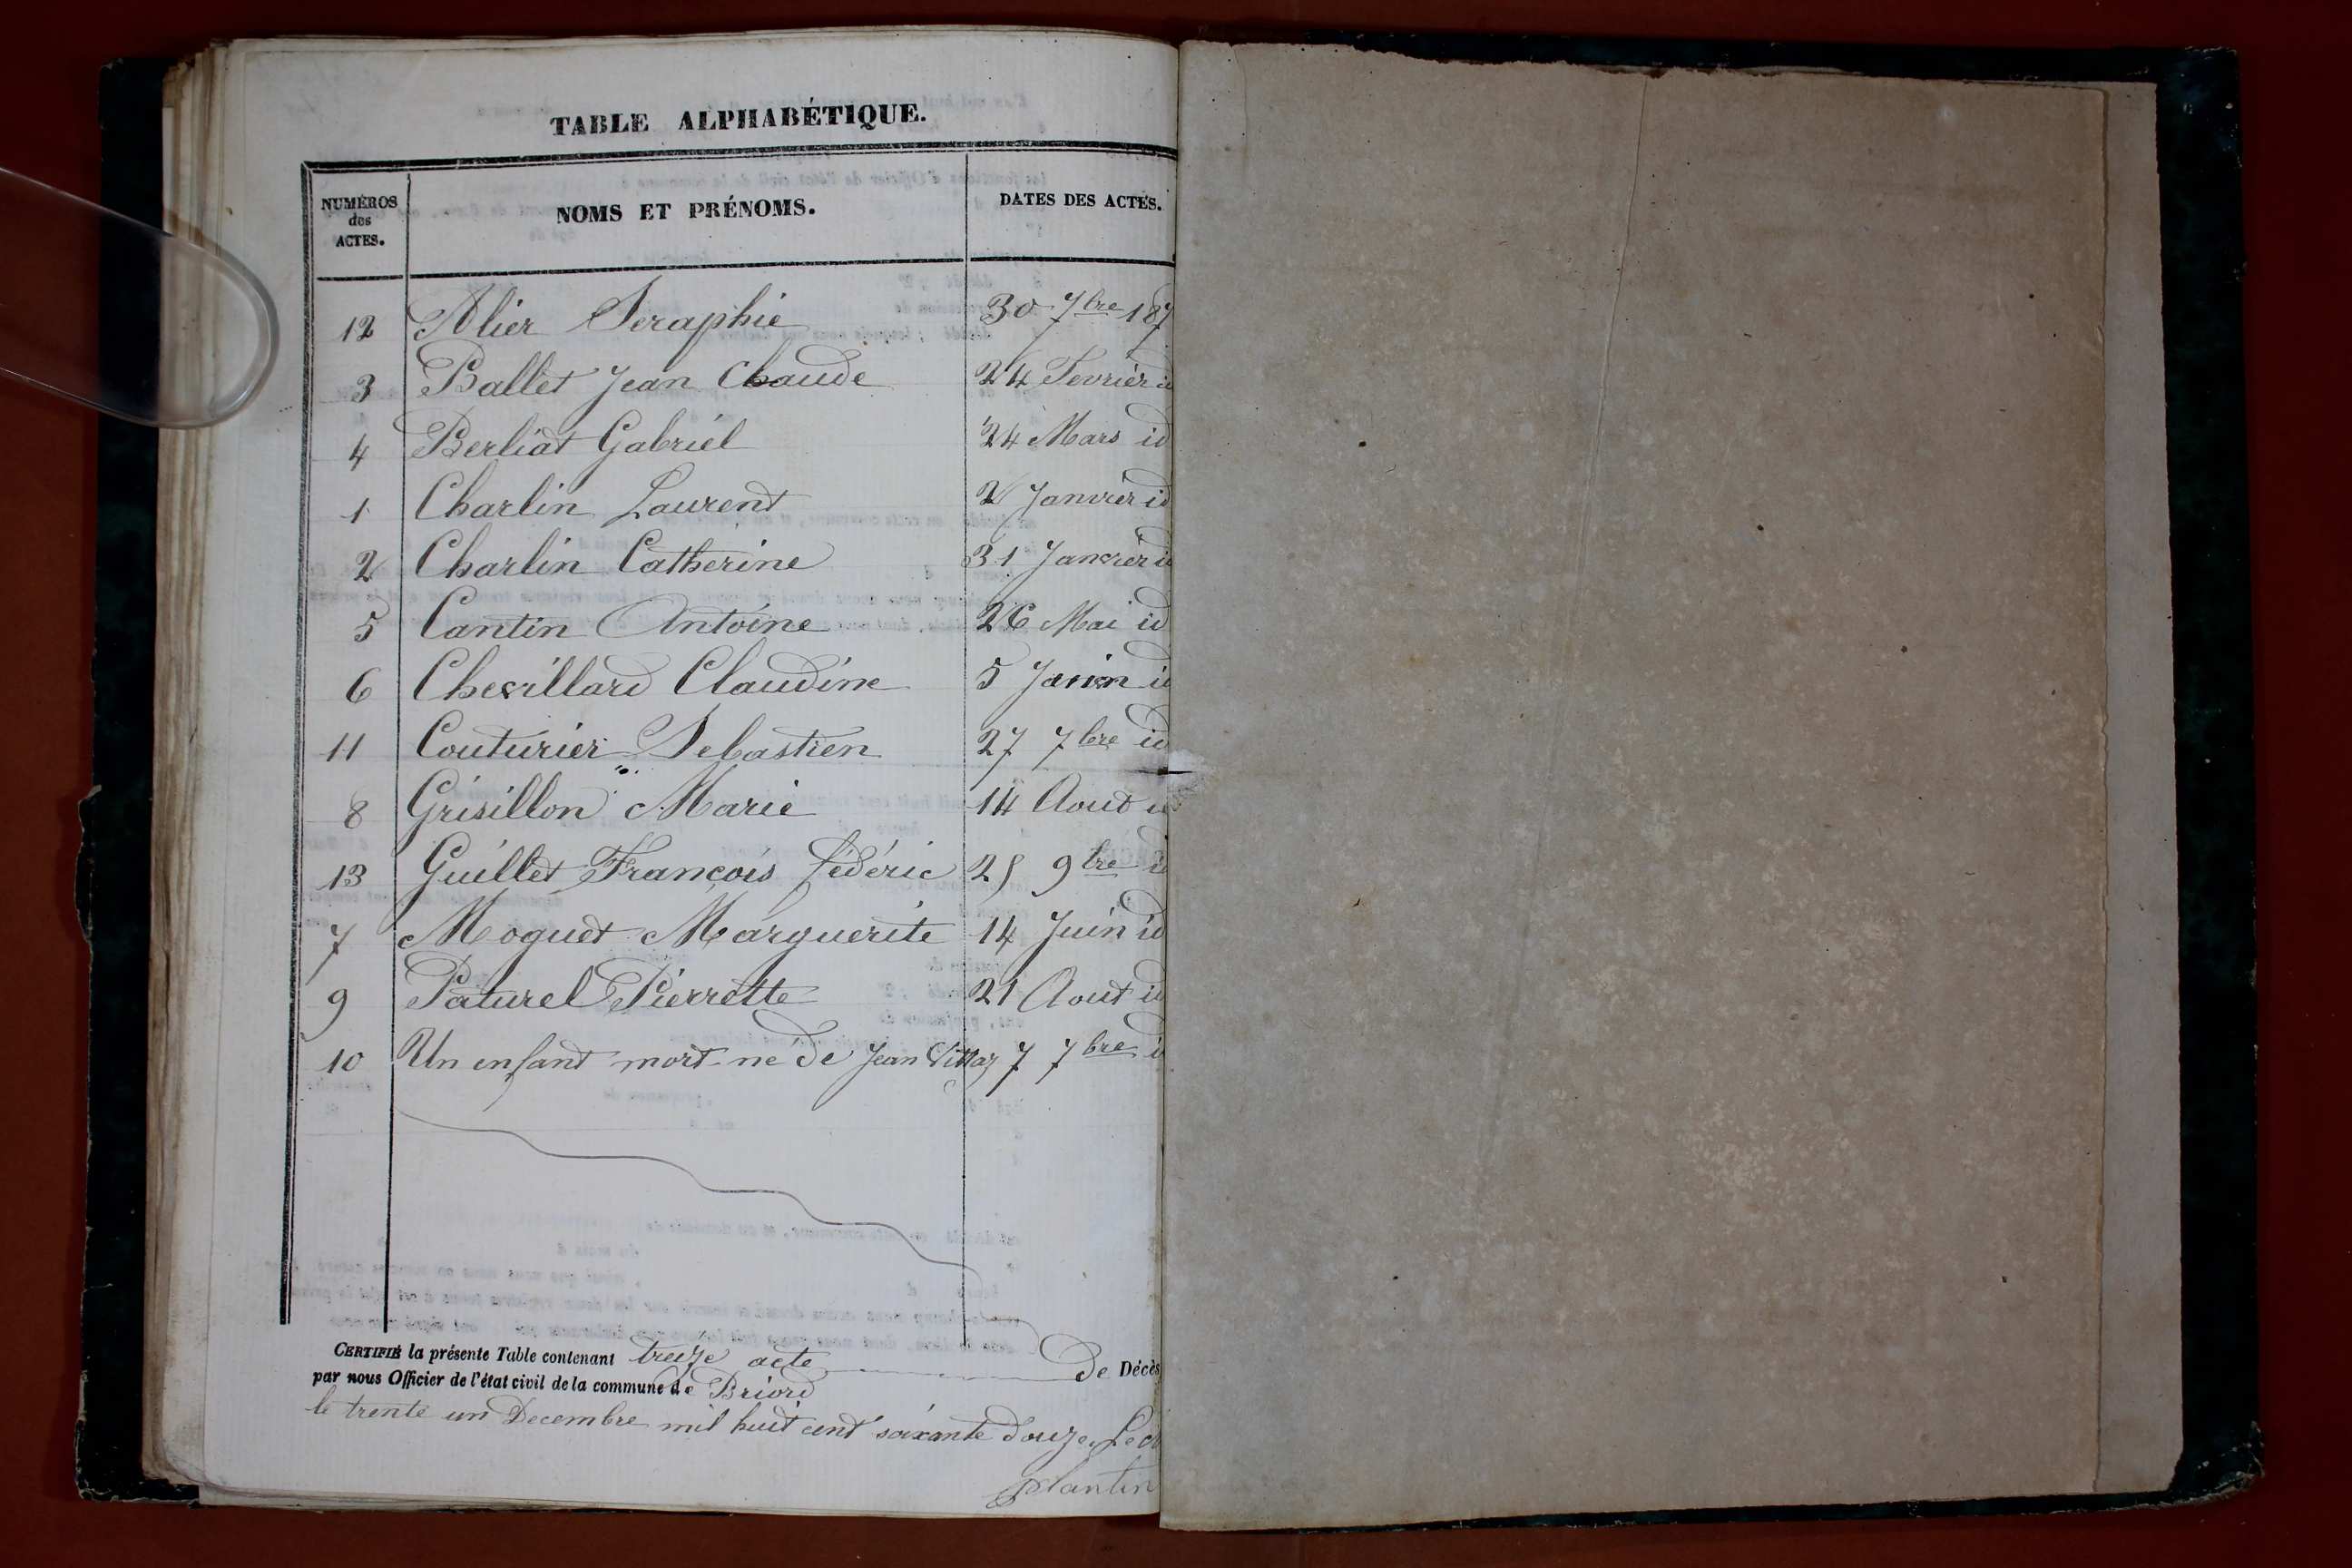 TABLE ALPHABÉTIQUE.
NUMÉROS des ACTES. NOMS ET PRÉNOMS. DATES DES ACTES.
12 Alier Seraphie 30 7bre 187
3 Ballet Jean Claude 24 Fevrier id
4 Berliat Gabriel 24 Mars id
1 Charlin Laurent 2 Janvier id
2 Charlin Catherine 31 Janvier id
5 Cantin Antoine 26 Mai id
6 Chevillard Claudine 5 Juin id
11 Couturier Sebastien 27 7bre id
8 Grisillon Marie 14 Aout id
13 Guillet François fédéric 25 9bre id
7 Moguet Marguerite 14 Juin id
9 Paturel Pierrette 21 Aout id
10 Un enfant mort-né de Jean Vittoz 7 7bre id
CERTIFIÉ la présente Table contenant treize acte de Décès
par nous Officier de l'état civil de la commune de Briord
le trente un Decembre mil huit cent soixante douze. Le
Plantin